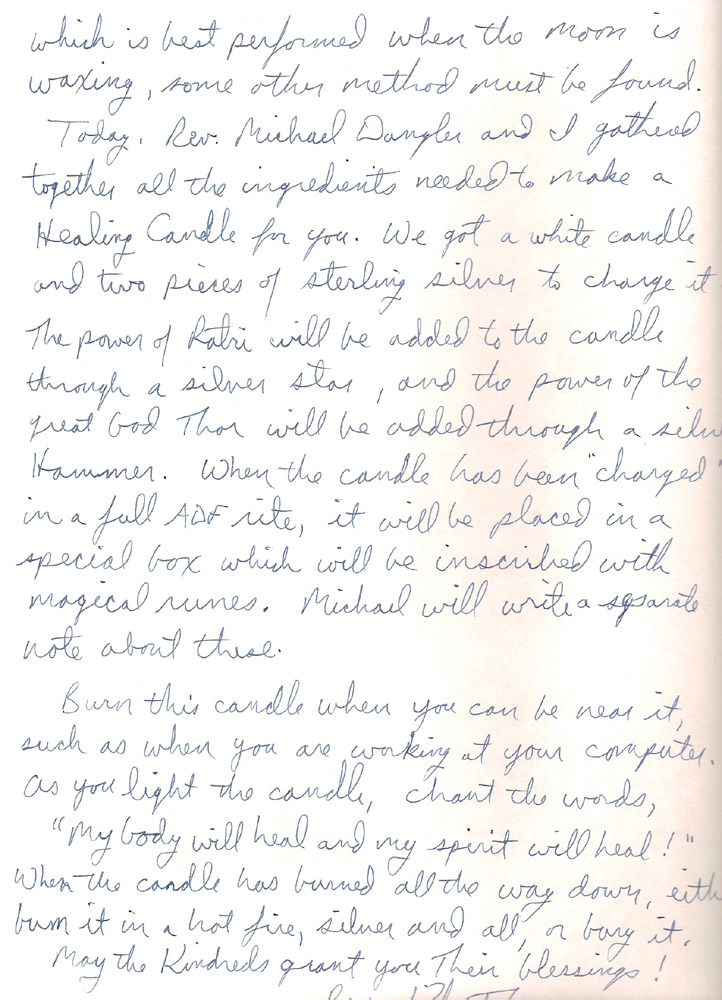 which is best performed when the moon is
waxing, some other method must be found.
Today, Rev. Michael Dangler and I gathered
together all the ingredients needed to make a
Healing Candle for you. We got a white candle
and two pieces of sterling silver to charge it
The power of Ratri will be added to the candle
through a silver star, and the power of the
great God Thor will be added through a silv
Hammer. When the candle has been "charged"
in a full ADF rite, it will be placed in a
special box which will be inscribed with
magical runes. Michael will write a separate
note about these.
Burn this candle when you can be near it,
such as when you are working at your computer.
As you light the candle, chant the words,
"My body will heal and my spirit will heal!"
When the candle has burned all the way down, eith
burn it in a hot fire, silver and all, or bury it.
May the Kindreds grant you Their blessings!